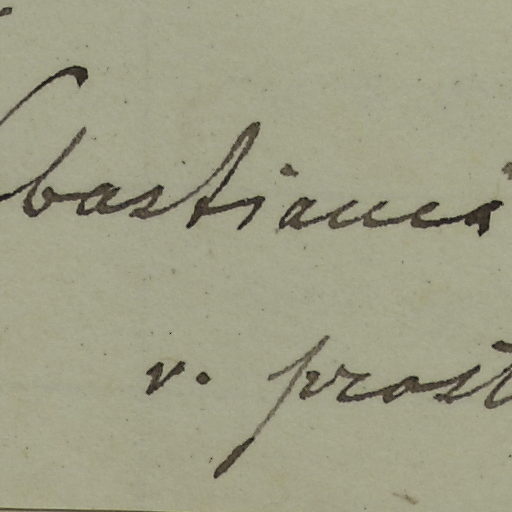 bastianci
v. prost